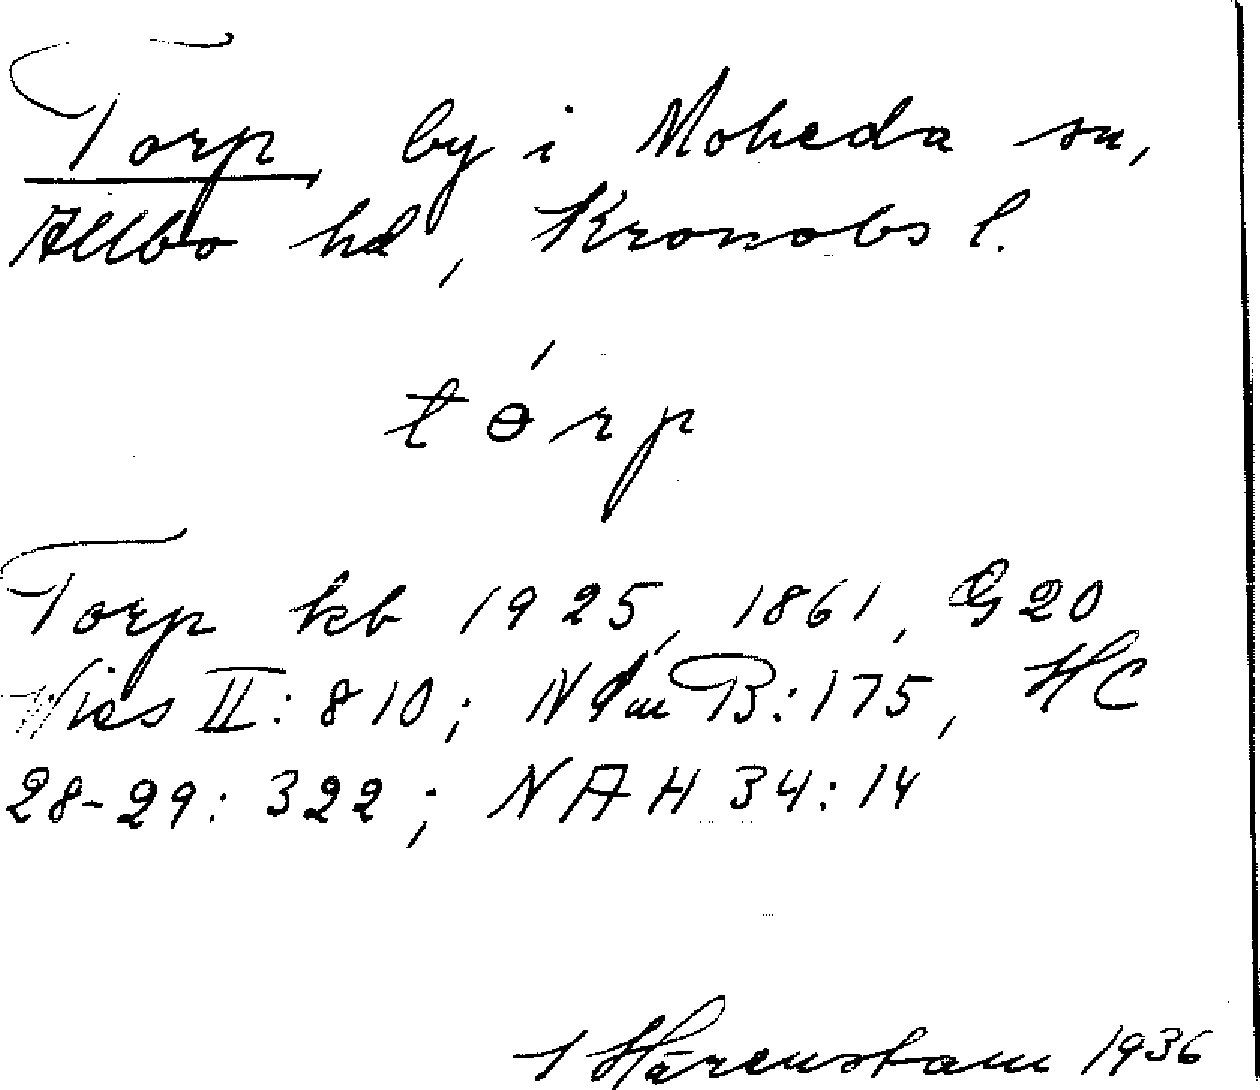 Torp by i Moheda sn,
Allbo hd, Kronobs l.
tɵ́rp
Torp kb 1925, 1861, G20
Wies II: 810; NSm B: 175, HC
28-29: 322; NAH 34: 14
J Hårenstam 1936